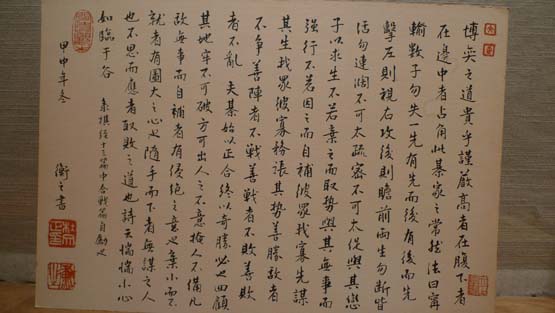 博奕之道貴乎謹嚴高者在腹下者
在邊中者占角此棊家之常然法曰寧
輸數子勿失一先有先而後有後而先
擊左則視右攻後則瞻前兩生勿斷皆
活勿連闊不可太疏密不可太促與其戀
子以求生不若棄之而取勢與其無事而
強行不若因之而自補彼眾我寡先謀
其生我眾彼寡務張其勢善勝敵者
不爭善陣者不戰善戰者不敗善敗
者不亂 夫棊始以正合終以奇勝必也四顧
其地牢不可破方可出人之不意掩人不備凡
敵無事而自補者有侵絕之意也棄小而不
就者有圖大之心也隨手而下者無謀之人
也不思而應者取敗之道也詩云惴惴小心
如臨于谷 棋經十三篇中合戰篇自勵也
甲申年冬 衡之書